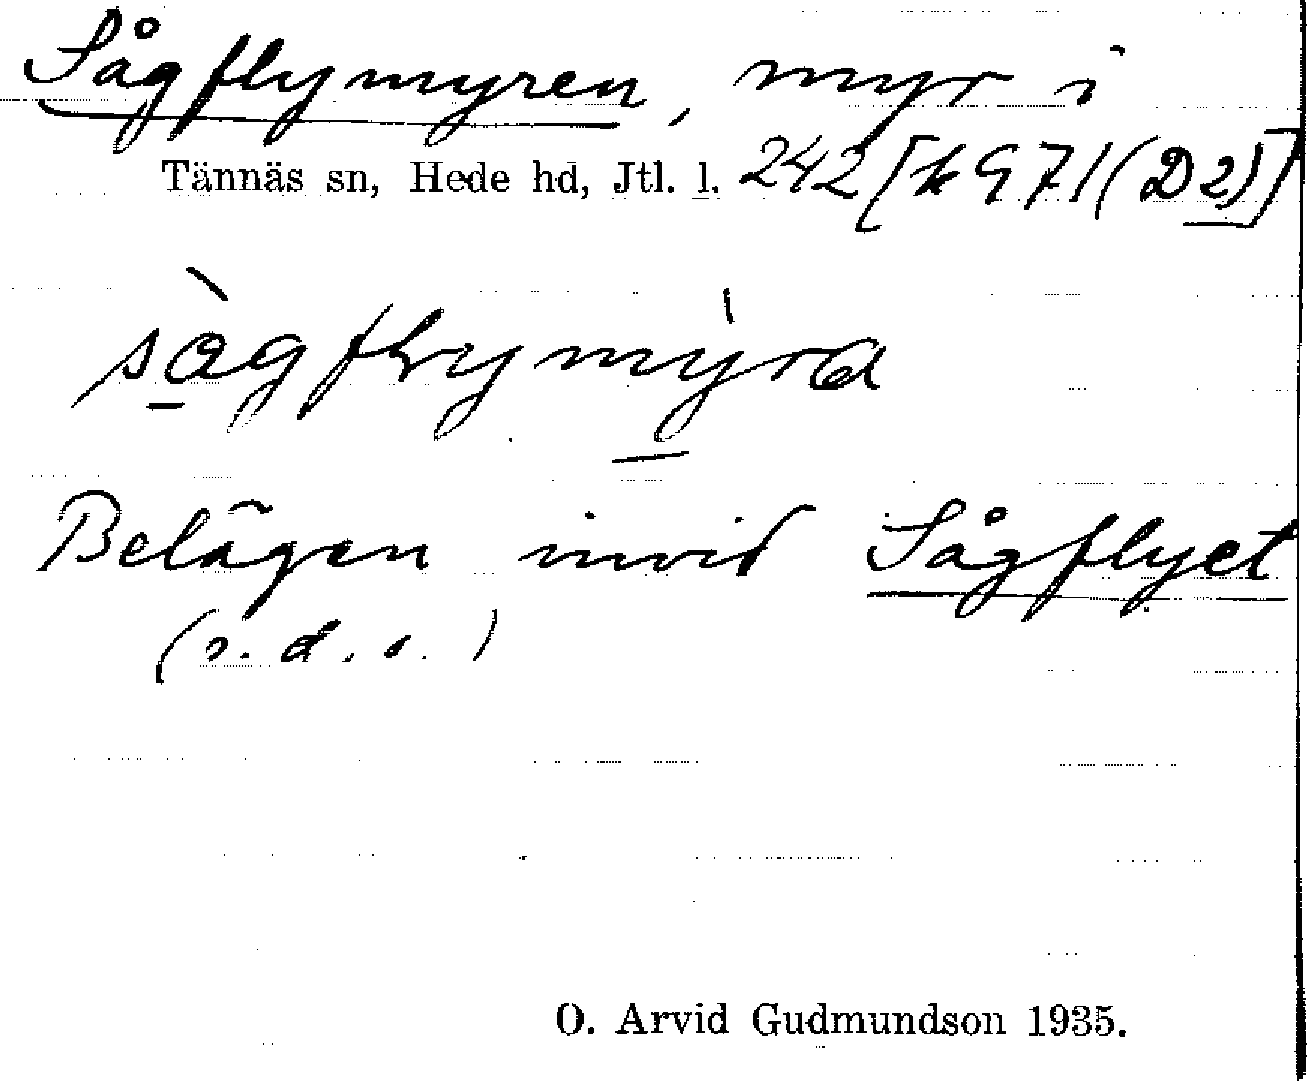 Sågflymyren, myr i
Tännäs sn, Hede hd, Jtl. l. 242 [k 971 (D2)]
sàgflymýra
Belägen invid Sågflyet
(s. d. o.)
O. Arvid Gudmundson 1935.